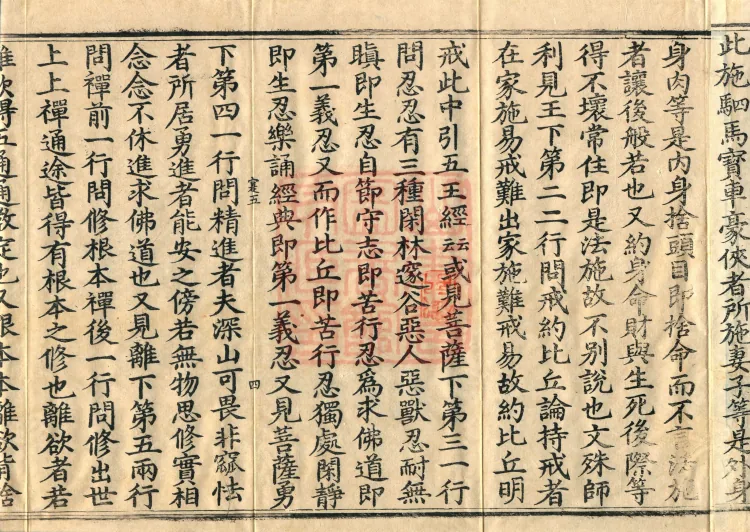 此施駟馬寶車豪俠者所施妻子等是外身
身肉等是内身捨頭目即捨命而不言法施
者讓後般若也又約身命財與生死後際等
得不壞常住即是法施故不別說也文殊師
利見王下第二二行問戒約比丘論持戒者
在家施易戒難出家施難戒易故約比丘明
戒此中引五王經云云或見菩薩下第三一行
問忍忍有三種閑林邃谷惡人惡獸忍耐無
瞋即生忍自節守志即苦行忍為求佛道即
第一義忍又而作比丘即苦行忍獨處閑靜
即生忍樂誦經典即第一義忍又見菩薩勇
寔五
四
下第四一行問精進者夫深山可畏非窳怯
者所居勇進者能安之傍若無物思修實相
念念不休進求佛道也又見離下第五兩行
問禪前一行問修根本禪後一行問修出世
上上禪通途皆得有根本之修也離欲者若
離欲得五通通教定也又根本本離欲皆捨